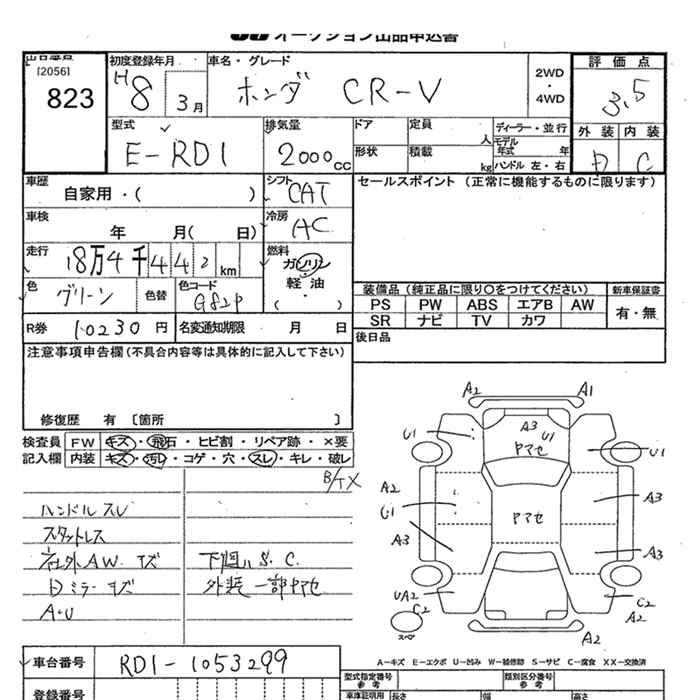 オークション出品申込書
出品番号 初度登録年月 車名・グレード 評価点
120561 H8 3月 ホンダ CR-V 2WD・4WD 3.5
823
外装 内装
D C
型式 排気量 ドア 定員 人 ディーラー・並行
モデル年式 年
E-RD1 2000cc 形状 積載 kg ハンドル 左・右
車歴 シフト セールスポイント (正常に機能するものに限ります)
自家用・( ) CAT
車検 冷房
年 月( 日) AC
走行 燃料
18万4千442km ガソリン
軽油
( ・ )
色 色替 色コード
グリーン G82P
装備品 (純正品に限り〇をつけてください) 新車保証書
PS PW ABS エアB AW 有・無
SR ナビ TV カワ
R券 10230円 名変通知期限 月 日
後日品
注意事項申告欄(不具合内容等は具体的に記入して下さい)
修復歴 有 〔箇所 〕
検査員 FW キズ・飛石・ヒビ割・リペア跡・×要
記入欄 内装 キズ・汚れ・コゲ・穴・スレ・キレ・破レ
ハンドルスレ
スタットレス
社外AW キズ
Dミラーキズ
A・U
下廻りS.C.
外装一部ヤマセ
A2 A1
U1 A3 U1 ヤマセ U1
A2 U1 A3 ヤマセ A3 A3
UA2 C2 スペア C2 A2 A2
A-キズ E-エクボ U-凹み W-補修跡 S-サビ C-腐食 XX-交換済
車台番号 RD1-1053299
型式指定番号 参考 類別区分番号 参考
登録番号 車庫証明用 長さ 幅 高さ